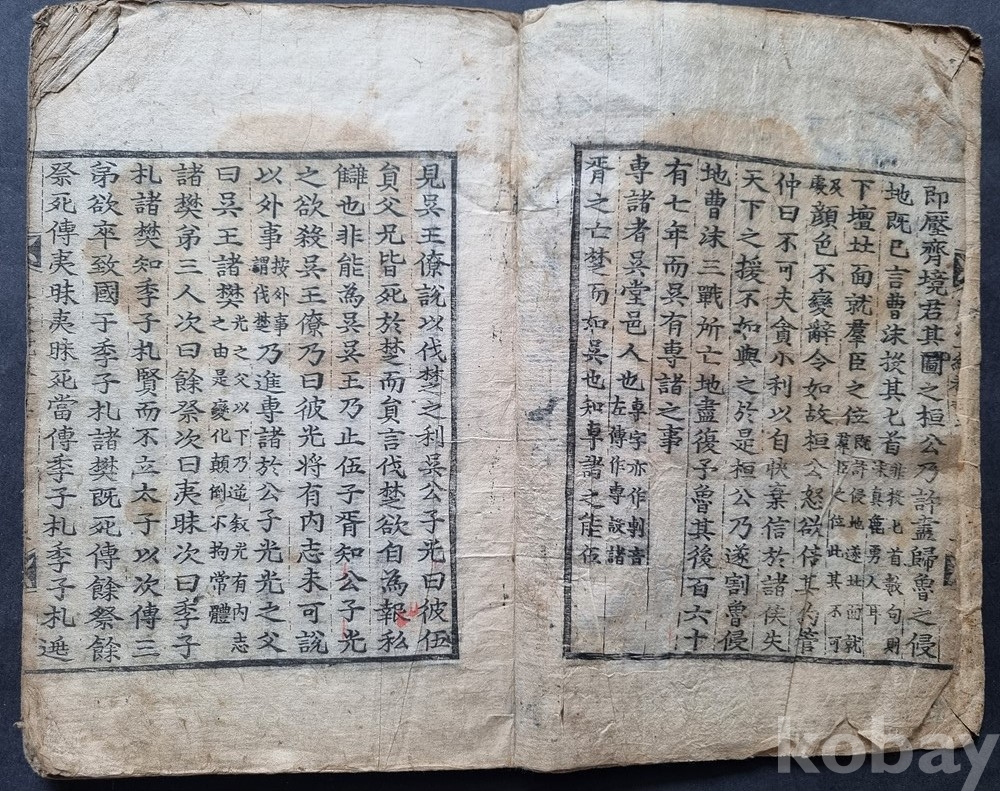 即壓齊境君其圖之桓公乃許盡歸魯之侵
地既已言曹沫投其匕首非投匕首數句則沫眞麁勇人耳
下壇北面就羣臣之位既許侵地遂北面就羣臣之位此其不可
及處顔色不變辭令如故桓公怒欲倍其約管
仲曰不可夫貪小利以自快棄信於諸侯失
天下之援不如與之於是桓公乃遂割魯侵
地曹沫三戰所亡地盡復予魯其後百六十
有七年而吳有專諸之事
專諸者吳堂邑人也專字亦作剸音左傳作專設諸
胥之亡楚而如吳也知專諸之能伍
見吳王僚說以伐楚之利吳公子光曰彼伍
貟父兄皆死於楚而貟言伐楚欲自為報私
讎也非能為吳吳王乃止伍子胥知公子光
之欲殺吳王僚乃曰彼光將有内志未可說
以外事按外事謂伐楚乃進專諸於公子光光之父
曰吳王諸樊光之父以下乃逆叙光有内志之由是變化顛倒不拘常體
諸樊弟三人次曰餘祭次曰夷眛次曰季子
札諸樊知季子札賢而不立太子以次傳三
弟欲卒致國于季子札諸樊既死傳餘祭餘
祭死傳夷眛夷眛死當傳季子札季子札逃
kobay